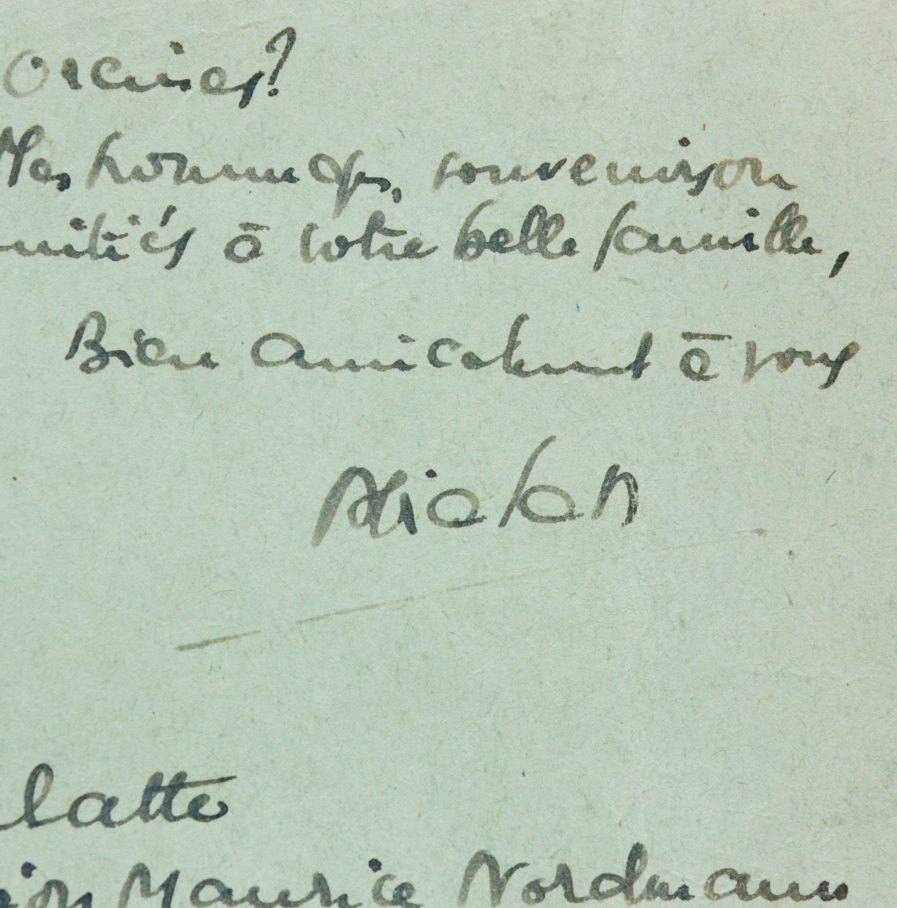 Orcines?
Mes hommages, souvenirs ou
amitiés à votre belle famille,
Bien amicalement à vous
latte
Maurice Nordmann